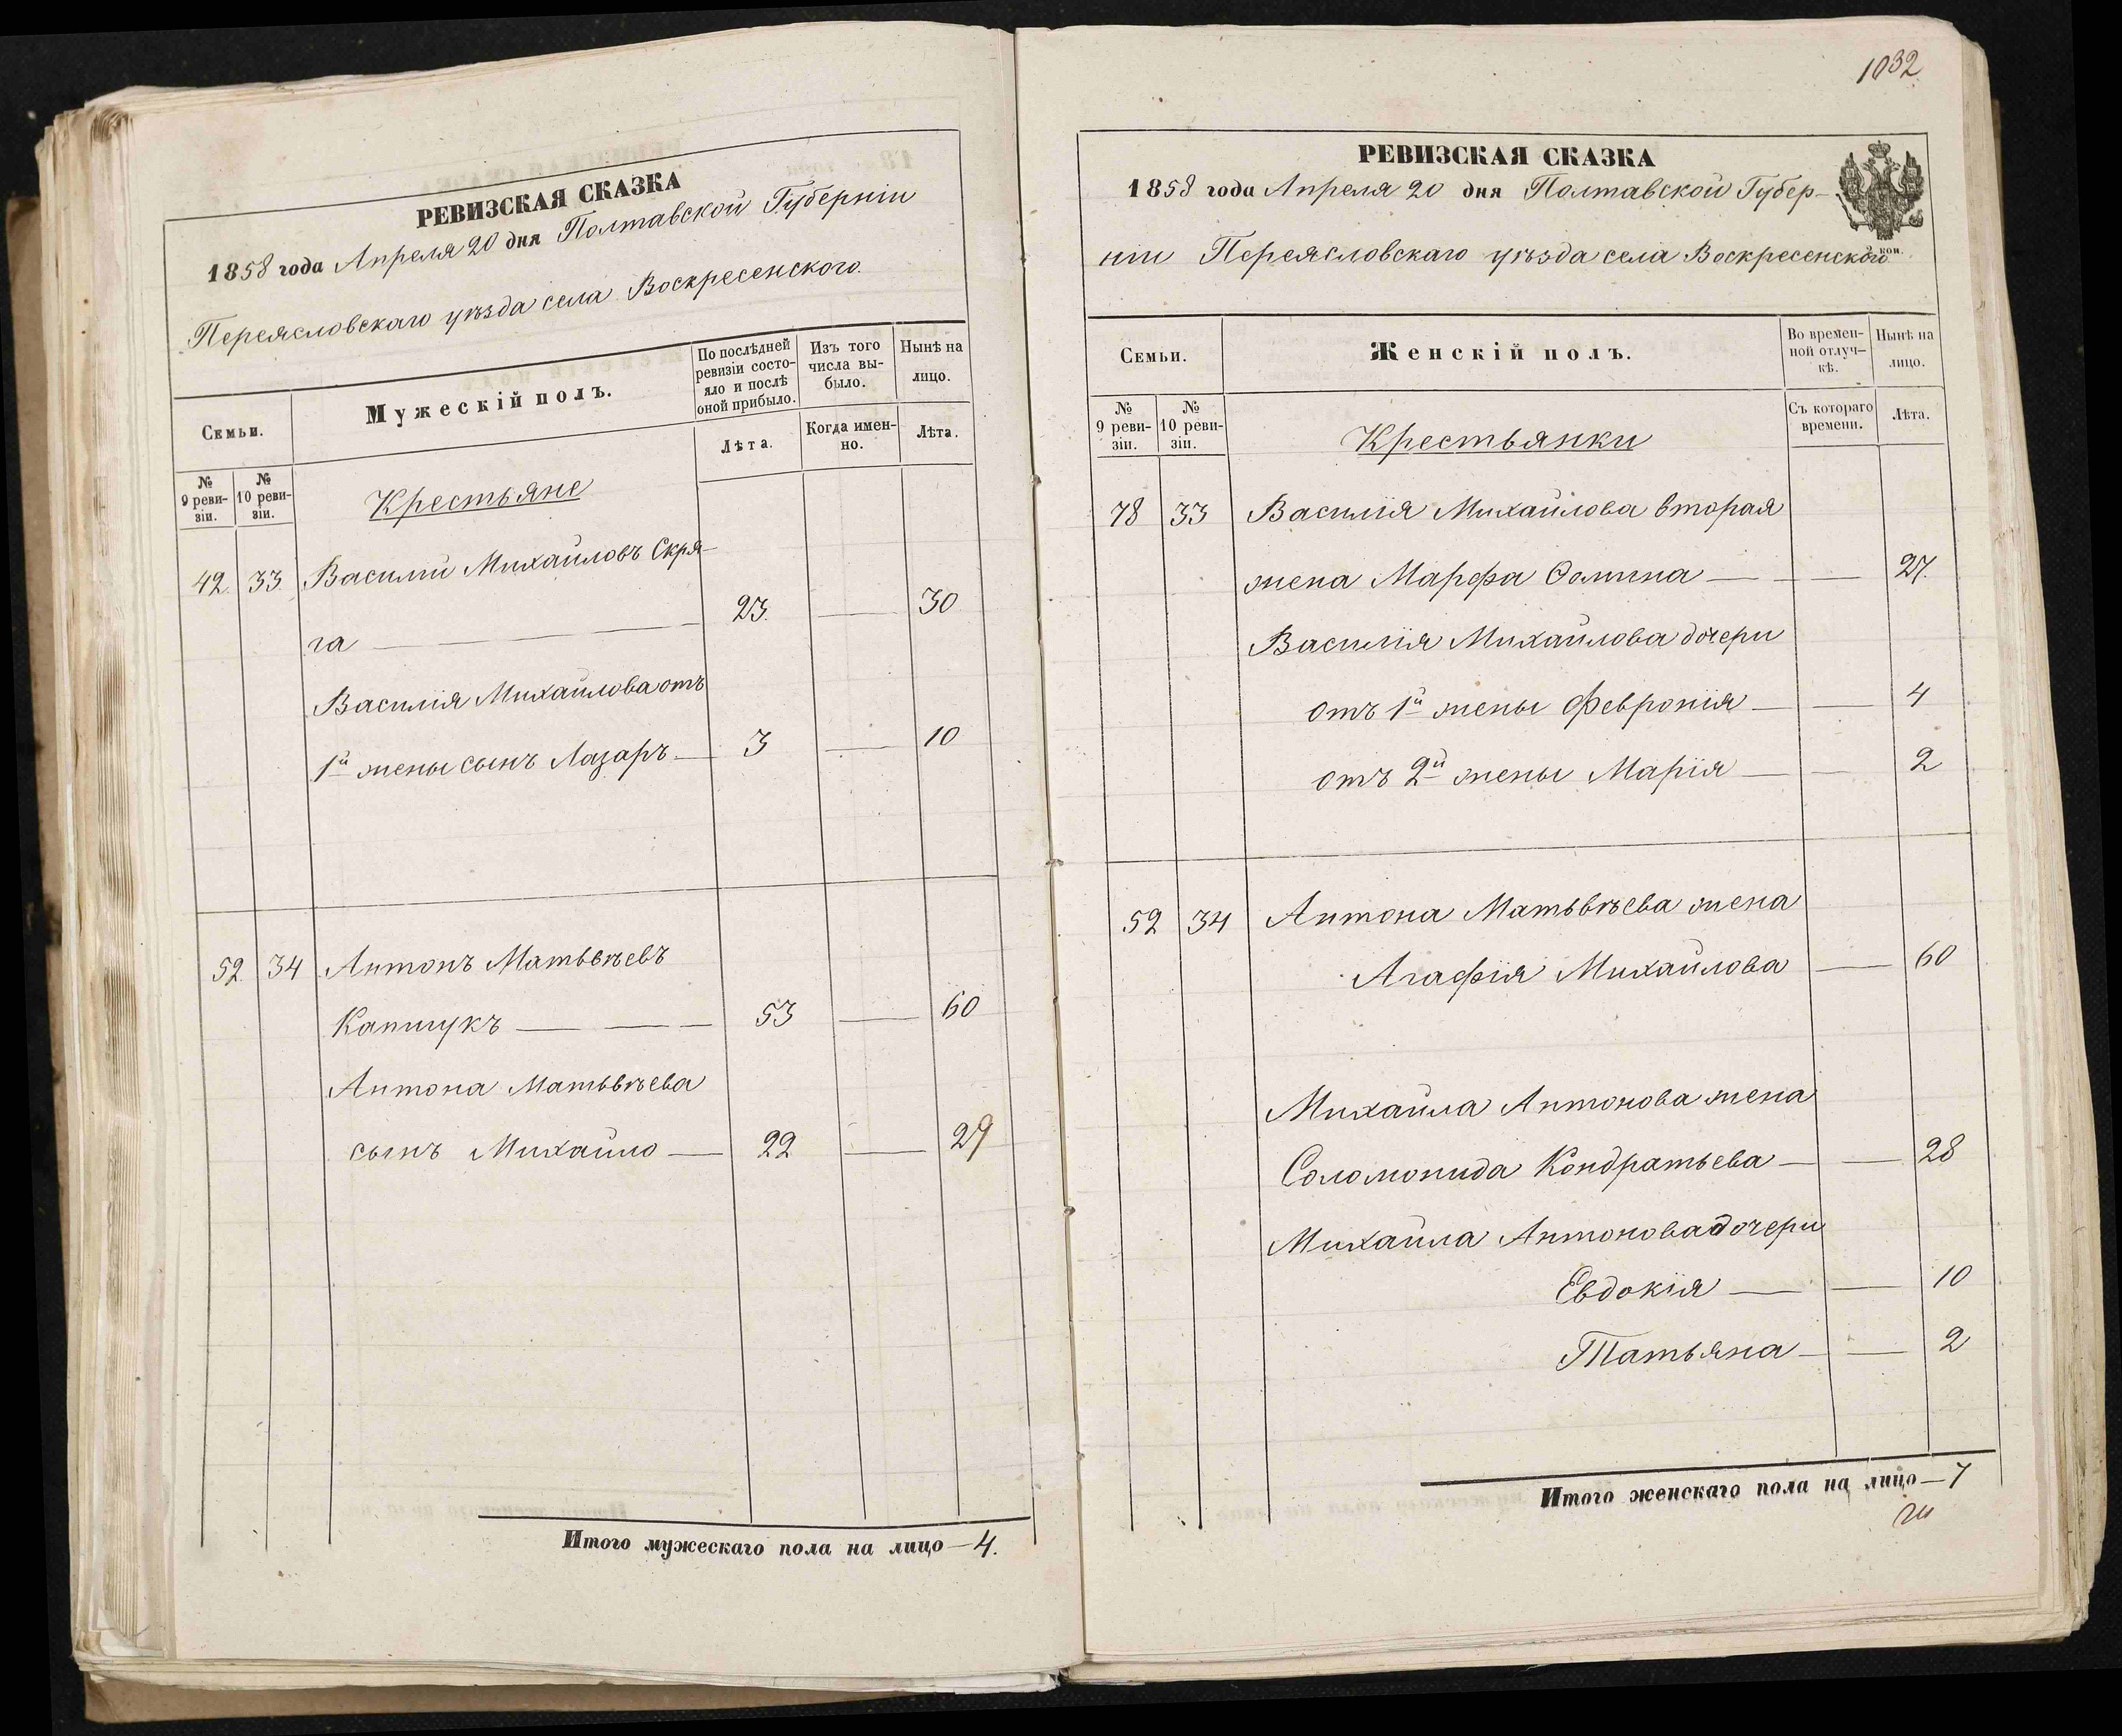 РЕВИЗСКАЯ СКАЗКА
1858 года Апреля 20 дня Полтавской Губерніи
Переясловскаго уѣзда села Воскресенского.
Семьи.
Мужескій полъ.
По послѣдней ревизіи состояло и послѣ оной прибыло.
Изъ того числа выбыло.
Нынѣ на лицо.
№ 9 ревизіи.
№ 10 ревизіи.
Лѣта.
Когда именно.
Лѣта.
Крестьяне
42. 33. Василій Михайловъ Скря-
га — 23. — 30
Василія Михайлова отъ
1й жены сынъ Лазаръ — 3 — 10
52. 34 Антонъ Матьвѣевъ
Капшукъ — — — 53 — 60
Антона Матьвѣева
сынъ Михайло — 22 — 29
Итого мужескаго пола на лицо — 4.
1032
РЕВИЗСКАЯ СКАЗКА
1858 года Апреля 20 дня Полтавской Губер-
ніи Переясловскаго уѣзда села Воскресенского
Семьи.
Женскій полъ.
Во временной отлучкѣ.
Нынѣ на лицо.
№ 9 ревизіи.
№ 10 ревизіи.
Съ котораго времени.
Лѣта.
Крестьянки
78 33 Василія Михайлова вторая
жена Марфа — — 27.
Василія Михайлова дочери
отъ 1й жены Февронія — — 4
отъ 2й жены Марія — — 2
52 34 Антона Матьвѣева жена
Агафія Михайлова — 60
Михайла Антонова жена
Соломонида Кондратьева — — 28
Михайла Антонова дочери
Евдокія — — 10
Татьяна — — 2
Итого женскаго пола на лицо — 7